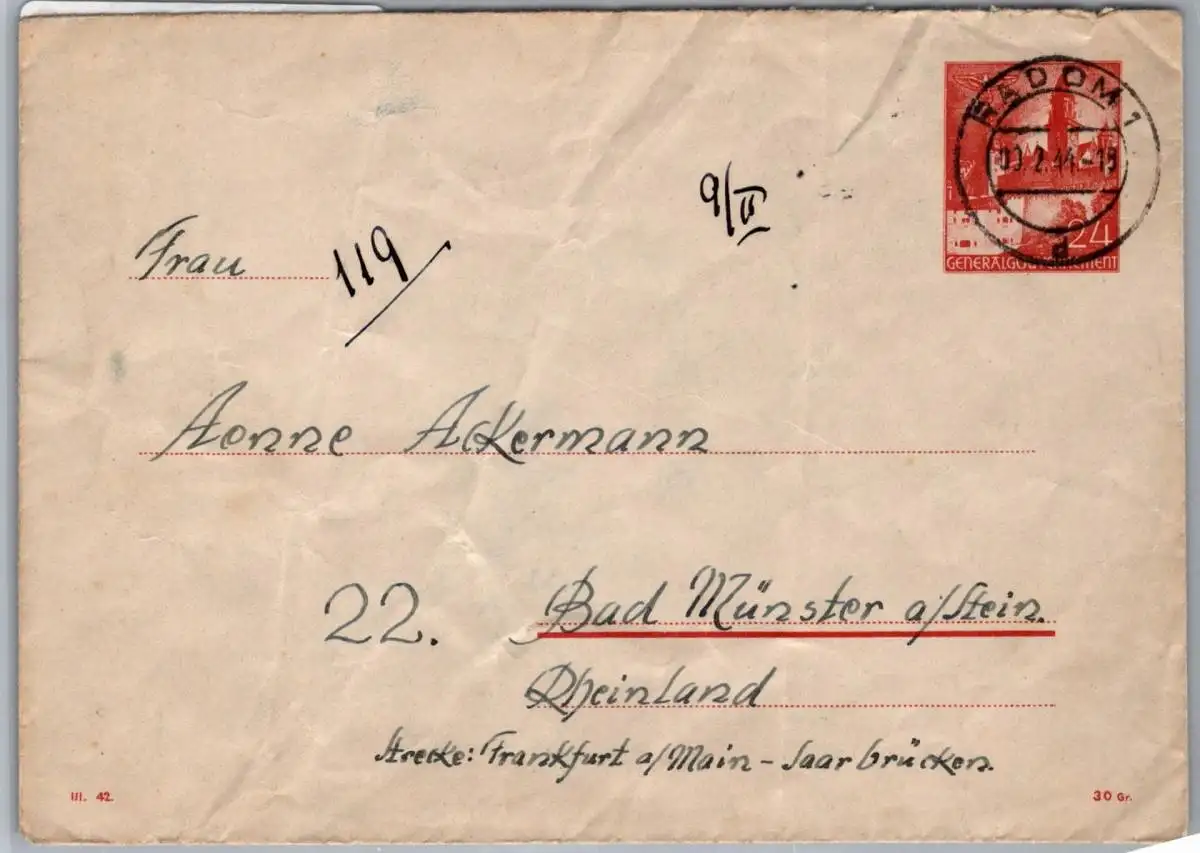 RADOM 1
09.2.44-19
d
24
GENERALGOUVERNEMENT
9/II
Frau
119
Aenne Ackermann
22. Bad Münster a/Stein.
Rheinland
Strecke: Frankfurt a/Main - Saarbrücken.
III. 42.
30 Gr.